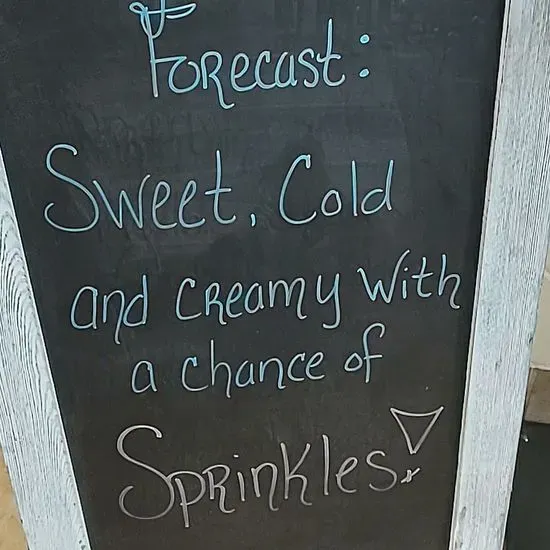 Forecast:
Sweet, Cold
and creamy with
a chance of
Sprinkles!